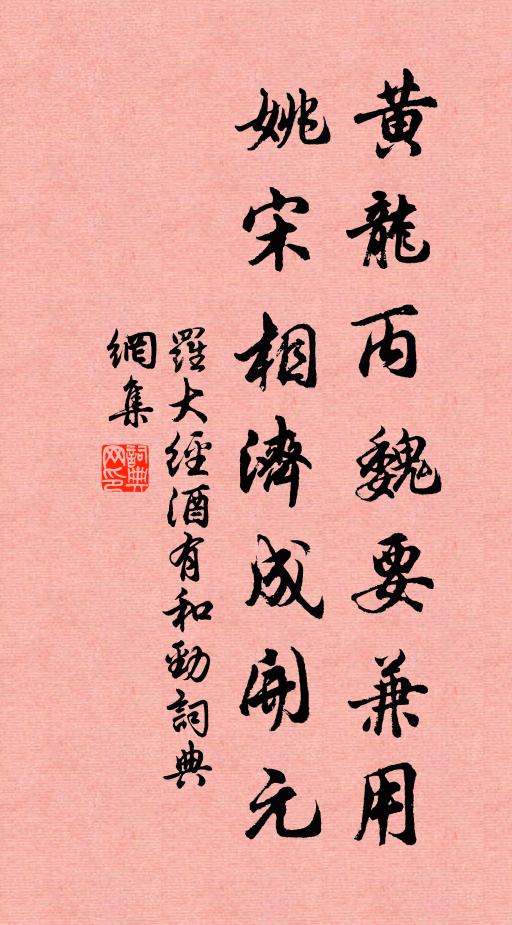 黃龍丙魏要兼用
姚宋相濟成開元
羅大經酒有和勁詞典
網集
詞典
网印